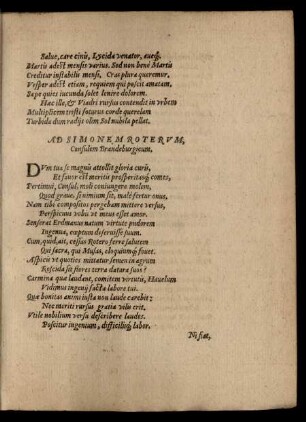 Salve, care civis, Lycida venator, avesq́;
Martis adest mensis varius. Sed non bene Martis
Creditur instabili mensi, Cras plura queremur.
Vesper adest etiam, requiem qui poscit amatam,
Sæpe quies iucunda solet lenire dolorem.
Hac ille, & Viadri rursus contendit in urbem
Multiplicem tristi futurus corde querelam
Turbida dum radijs olim Sol nubila pellat.
AD SIMONEM ROTERVM,
Consulem Brandeburgicum.
DVm tua se magnis attollit gloria curis,
Et favor est meritis prosperitasq́; comes,
Pertimui, Consul, moli coniungere molem,
Quod grave, si nimium sit, male fertur onus,
Num tibi compositos pergebam mittere versus,
Perspicuum vobis ut meus esset amor.
Senserat Erdmannus natum virtute puderem
Ingenuæ, cœptum deseruisse suum.
Cum, quid, ait, celsus Rotero ferre salutem
Qui sacra, qui Musas, eloquiumq́; fovet.
Aspicis ut quoties mittatur semen in agrum
Roscida sit flores terra datura suos?
Carmina quæ laudant, comitem virtutis, Havelum
Vidimus ingenij facta labore tui.
Quæ bonitas animi iusta non laude carebit;
Nec meriti rursus gratia vilis erit.
Vtile nobilium versu describere laudes.
Poscitur ingenium, difficilisq́; labor.
Ni fiat,